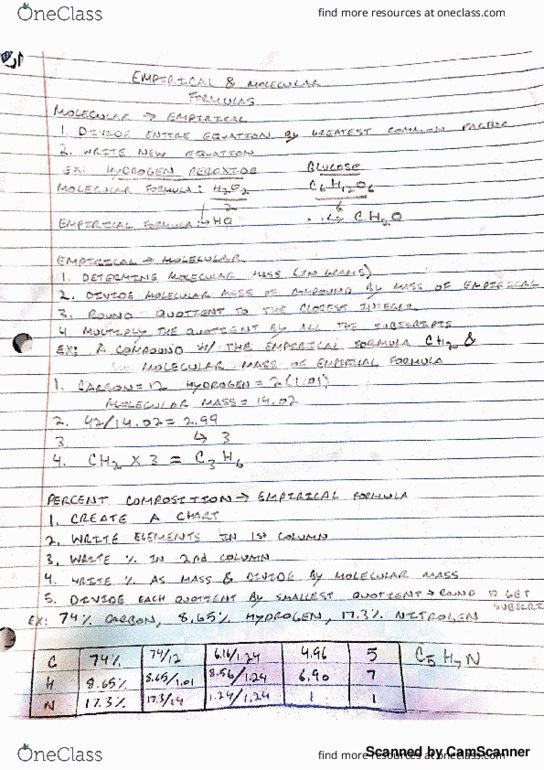 OneClass
find more resources at oneclass.com
EMPIRICAL & MOLECULAR
FORMULAS
MOLECULAR → EMPIRICAL
1. DIVIDE ENTIRE EQUATION BY GREATEST COMMON FACTOR
2. WRITE NEW EQUATION
EX: HYDROGEN PEROXIDE GLUCOSE
MOLECULAR FORMULA: H2O2 C6H12O6
2 6
EMPIRICAL FORMULA: ↳ HO ↳ CH2O
EMPIRICAL → MOLECULAR
1. DETERMINE MOLECULAR MASS (IN GRAMS)
2. DIVIDE MOLECULAR MASS OF COMPOUND BY MASS OF EMPIRICAL
3. ROUND QUOTIENT TO THE CLOSEST INTEGER
4. MULTIPLY THE QUOTIENT BY ALL THE SUBSCRIPTS
EX: A COMPOUND W/ THE EMPIRICAL FORMULA CH2 &
MOLECULAR MASS OF EMPIRICAL FORMULA
1. CARBON = 12 HYDROGEN = 2(1.01)
MOLECULAR MASS = 14.02
2. 42/14.02 = 2.99
3. ↳ 3
4. CH2 X 3 = C3H6
PERCENT COMPOSITION → EMPIRICAL FORMULA
1. CREATE A CHART
2. WRITE ELEMENTS IN 1st COLUMN
3. WRITE % IN 2nd COLUMN
4. WRITE % AS MASS & DIVIDE BY MOLECULAR MASS
5. DIVIDE EACH QUOTIENT BY SMALLEST QUOTIENT → ROUND TO GET
SUBSCRI
EX: 74% CARBON, 8.65% HYDROGEN, 17.3% NITROGEN
C 74% 74/12 6.16/1.24 4.96 5 C5H7N
H 8.65% 8.65/1.01 8.56/1.24 6.90 7
N 17.3% 17.3/14 1.24/1.24 1 1
OneClass
find more resources at oneclass.com
Scanned by CamScanner